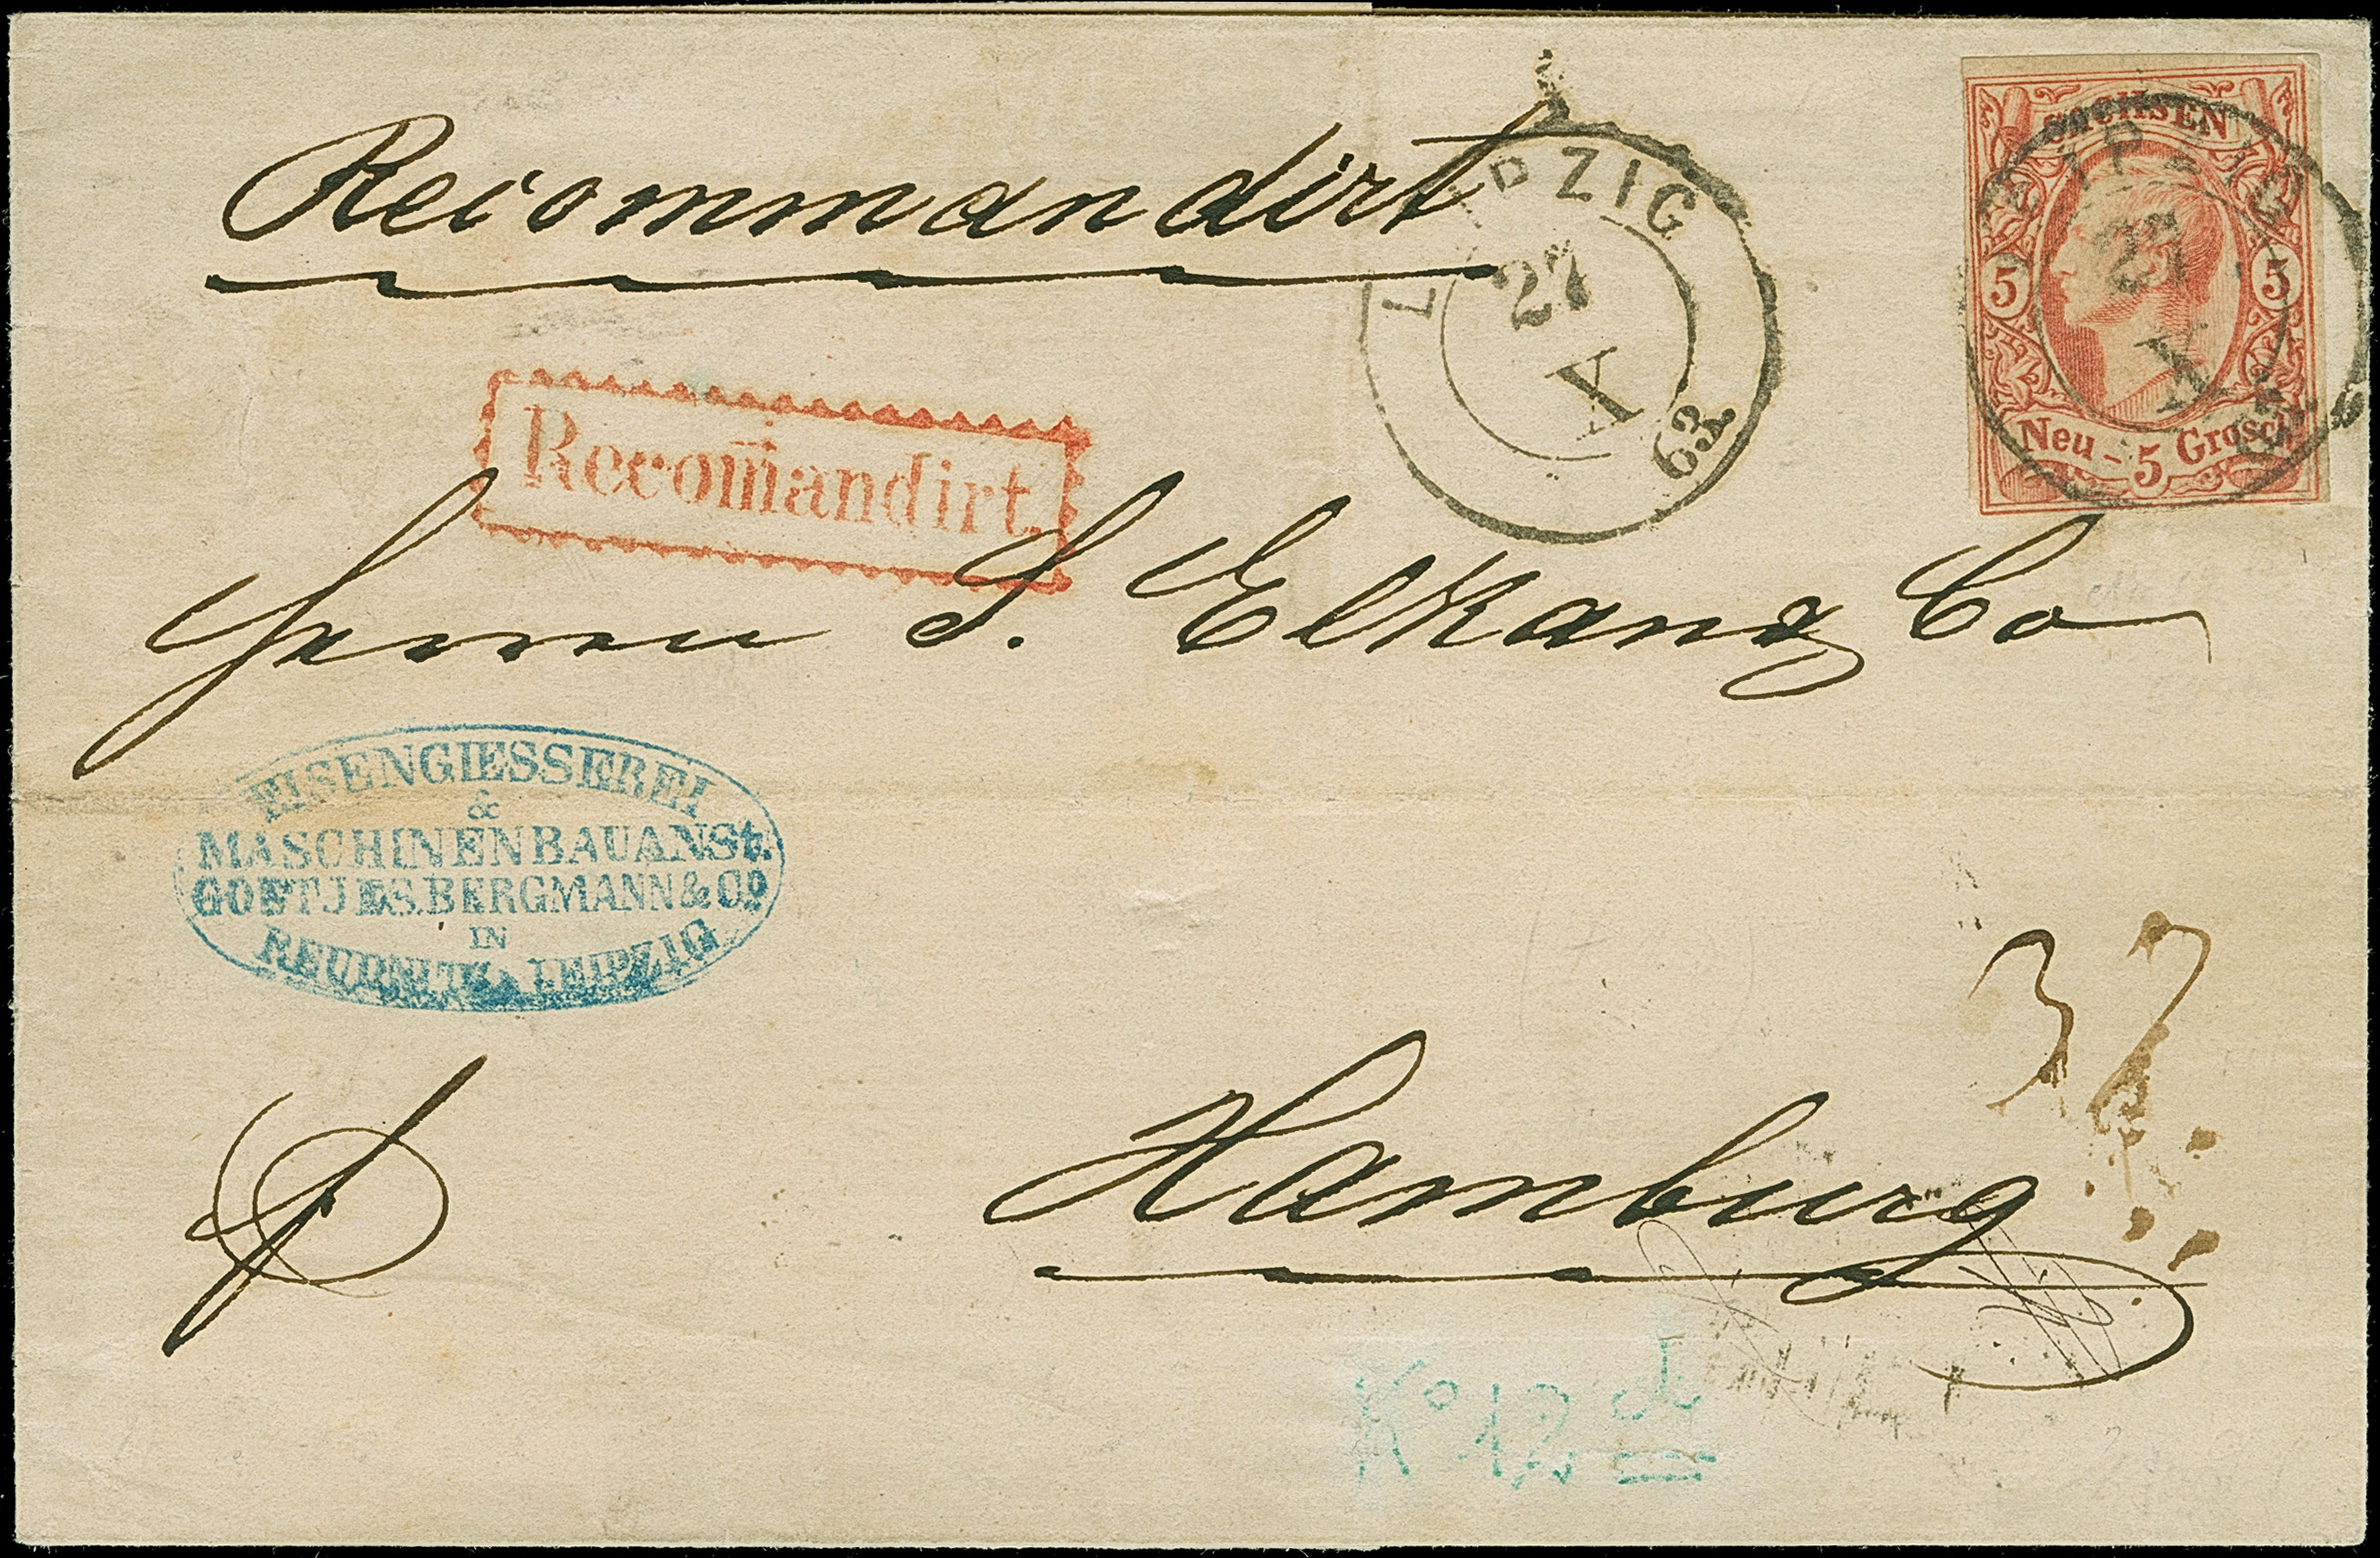 Recommandirt
LEIPZIG
27
X
63
SACHSEN
5 5
Neu - 5 Grosch
LEIPZIG
27
X
63
Recom̅andirt.
Herren S. Elkan & Co
EISENGIESSEREI
&
MASCHINENBAUANSt.
GOETJES. BERGMANN & Co
IN
REUDNITZ - LEIPZIG
37
Hamburg
No 12